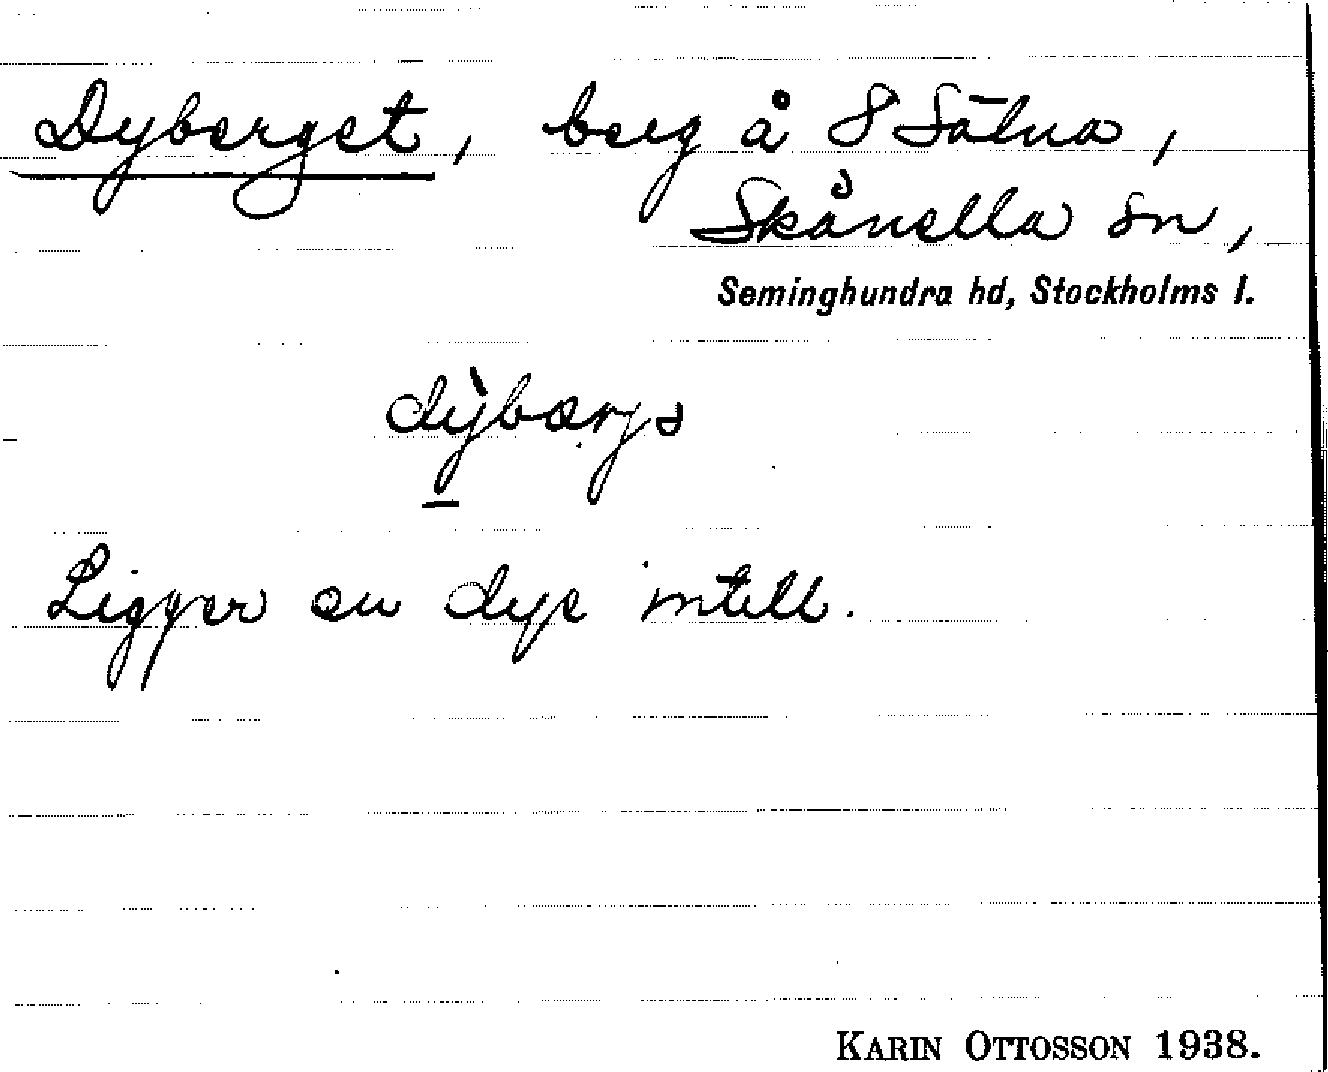 Dyberget, berg å S Sätuna,
Skånella sn,
Seminghundra hd, Stockholms l.
dỳ̱bærjə
Ligger en dye intill.
KARIN OTTOSSON 1938.